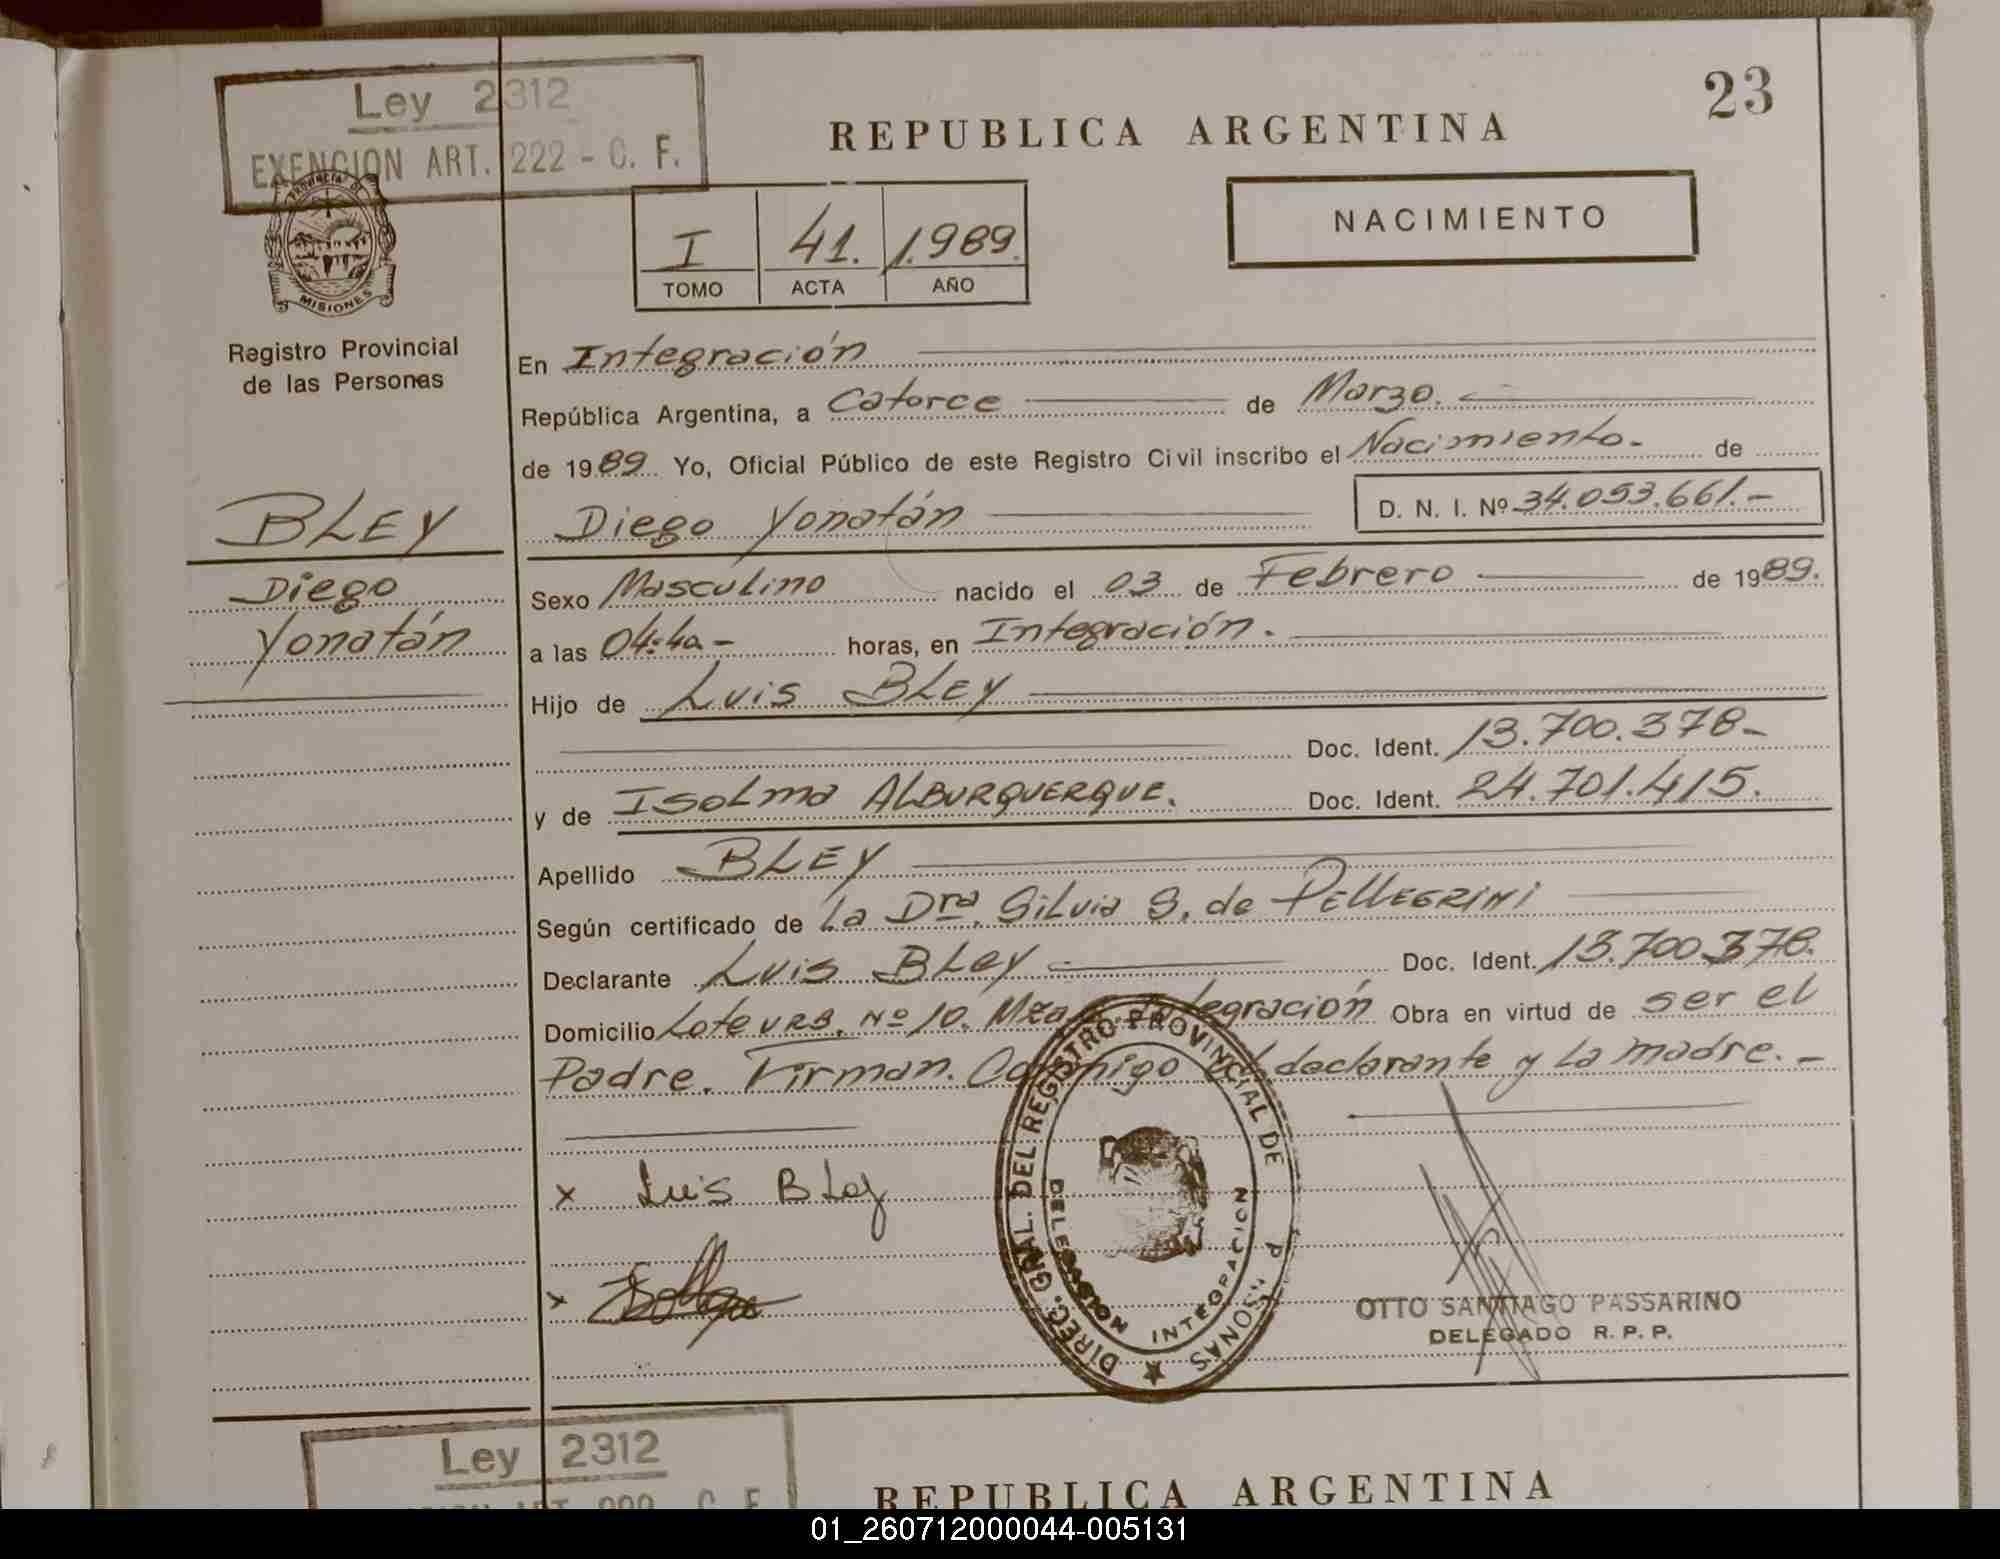 Ley 2312
EXENCION ART. 222 - C. F.
23
REPUBLICA ARGENTINA
NACIMIENTO
PROVINCIA DE
MISIONES
I 41. 1.989.
TOMO ACTA AÑO
Registro Provincial
de las Personas
BLEY
Diego
Yonatán
En Integración
República Argentina, a Catorce de Marzo.
de 1989 Yo, Oficial Público de este Registro Civil inscribo el Nacimiento. de
Diego Yonatán D. N. I. Nº 34.053.661.-
Sexo Masculino nacido el 03 de Febrero de 1989.
a las 04:40- horas, en Integración.
Hijo de Luis BLEY
Doc. Ident. 13.700.378-
y de Isolma ALBURQUERQUE. Doc. Ident. 24.701.415.
Apellido BLEY
Según certificado de La Dra. Silvia S. de PELLEGRINI
Declarante Luis BLEY Doc. Ident. 13.700.378.
Domicilio Lote URB. Nº 10. Integración Obra en virtud de ser el
Padre. Firman. Conmigo el declarante y la madre.-
x Luis Bley
x
DIREC. GRAL. DEL REGISTRO PROVINCIAL DE
DELEGACION INTEGRACION
OTTO SANTIAGO PASSARINO
DELEGADO R. P. P.
Ley 2312
REPUBLICA ARGENTINA
01_260712000044-005131